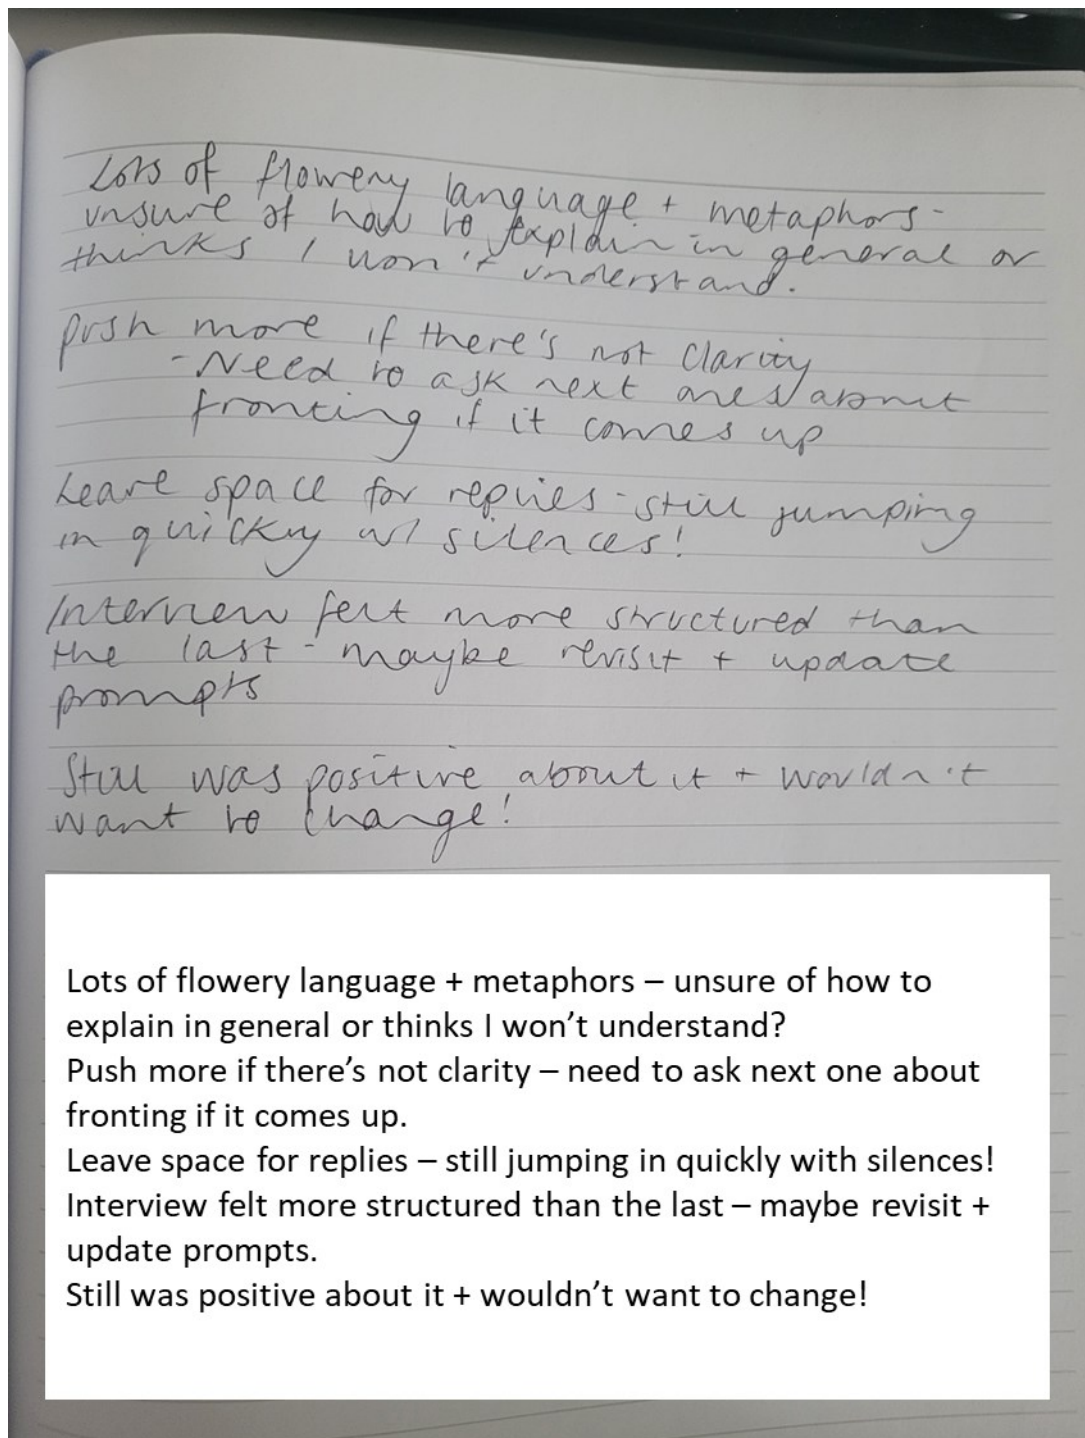 Lots of flowery language + metaphors -
unsure of how to explain in general or
thinks I won't understand.
push more if there's not clarity
- Need to ask next ones about
fronting if it comes up
Leave space for replies - still jumping
in quickly w/ silences!
Interview felt more structured than
the last - maybe revisit + update
prompts
Still was positive about it + wouldn't
want to change!
Lots of flowery language + metaphors – unsure of how to
explain in general or thinks I won't understand?
Push more if there's not clarity – need to ask next one about
fronting if it comes up.
Leave space for replies – still jumping in quickly with silences!
Interview felt more structured than the last – maybe revisit +
update prompts.
Still was positive about it + wouldn't want to change!